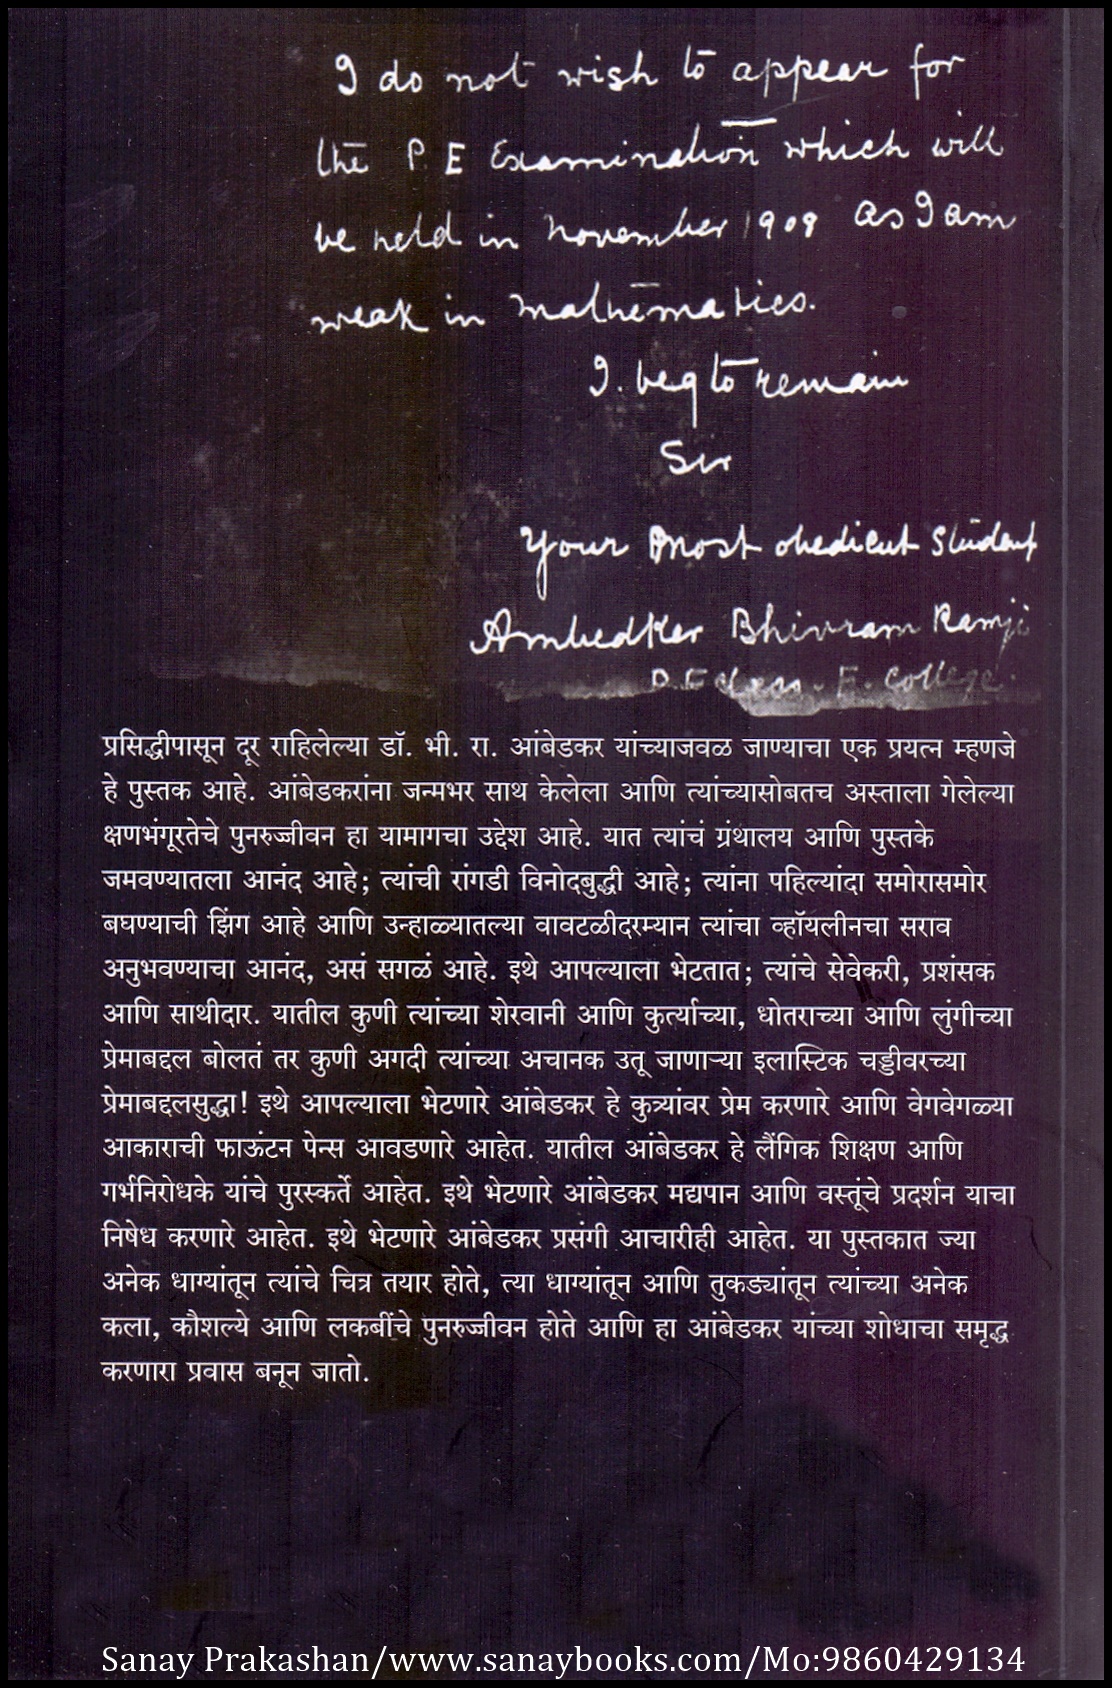 I do not wish to appear for
the P. E Examination which will
be held in November 1908 as I am
weak in mathematics.
I. beg to remain
Sir
Your most obedient student
Ambedkar Bhivram Ramji
P. E class. E. College.
प्रसिद्धीपासून दूर राहिलेल्या डॉ. भी. रा. आंबेडकर यांच्याजवळ जाण्याचा एक प्रयत्न म्हणजे
हे पुस्तक आहे. आंबेडकरांना जन्मभर साथ केलेला आणि त्यांच्यासोबतच अस्ताला गेलेल्या
क्षणभंगूरतेचे पुनरुज्जीवन हा यामागचा उद्देश आहे. यात त्यांचं ग्रंथालय आणि पुस्तके
जमवण्यातला आनंद आहे; त्यांची रांगडी विनोदबुद्धी आहे; त्यांना पहिल्यांदा समोरासमोर
बघण्याची झिंग आहे आणि उन्हाळ्यातल्या वावटळीदरम्यान त्यांचा व्हॉयलीनचा सराव
अनुभवण्याचा आनंद, असं सगळं आहे. इथे आपल्याला भेटतात; त्यांचे सेवेकरी, प्रशंसक
आणि साथीदार. यातील कुणी त्यांच्या शेरवानी आणि कुर्त्याच्या, धोतराच्या आणि लुंगीच्या
प्रेमाबद्दल बोलतं तर कुणी अगदी त्यांच्या अचानक उतू जाणाऱ्या इलास्टिक चड्डीवरच्या
प्रेमाबद्दलसुद्धा! इथे आपल्याला भेटणारे आंबेडकर हे कुत्र्यांवर प्रेम करणारे आणि वेगवेगळ्या
आकाराची फाऊंटन पेन्स आवडणारे आहेत. यातील आंबेडकर हे लैंगिक शिक्षण आणि
गर्भनिरोधके यांचे पुरस्कर्ते आहेत. इथे भेटणारे आंबेडकर मद्यपान आणि वस्तूंचे प्रदर्शन याचा
निषेध करणारे आहेत. इथे भेटणारे आंबेडकर प्रसंगी आचारीही आहेत. या पुस्तकात ज्या
अनेक धाग्यांतून त्यांचे चित्र तयार होते, त्या धाग्यांतून आणि तुकड्यांतून त्यांच्या अनेक
कला, कौशल्ये आणि लकबींचे पुनरुज्जीवन होते आणि हा आंबेडकर यांच्या शोधाचा समृद्ध
करणारा प्रवास बनून जातो.
Sanay Prakashan/www.sanaybooks.com/Mo:9860429134